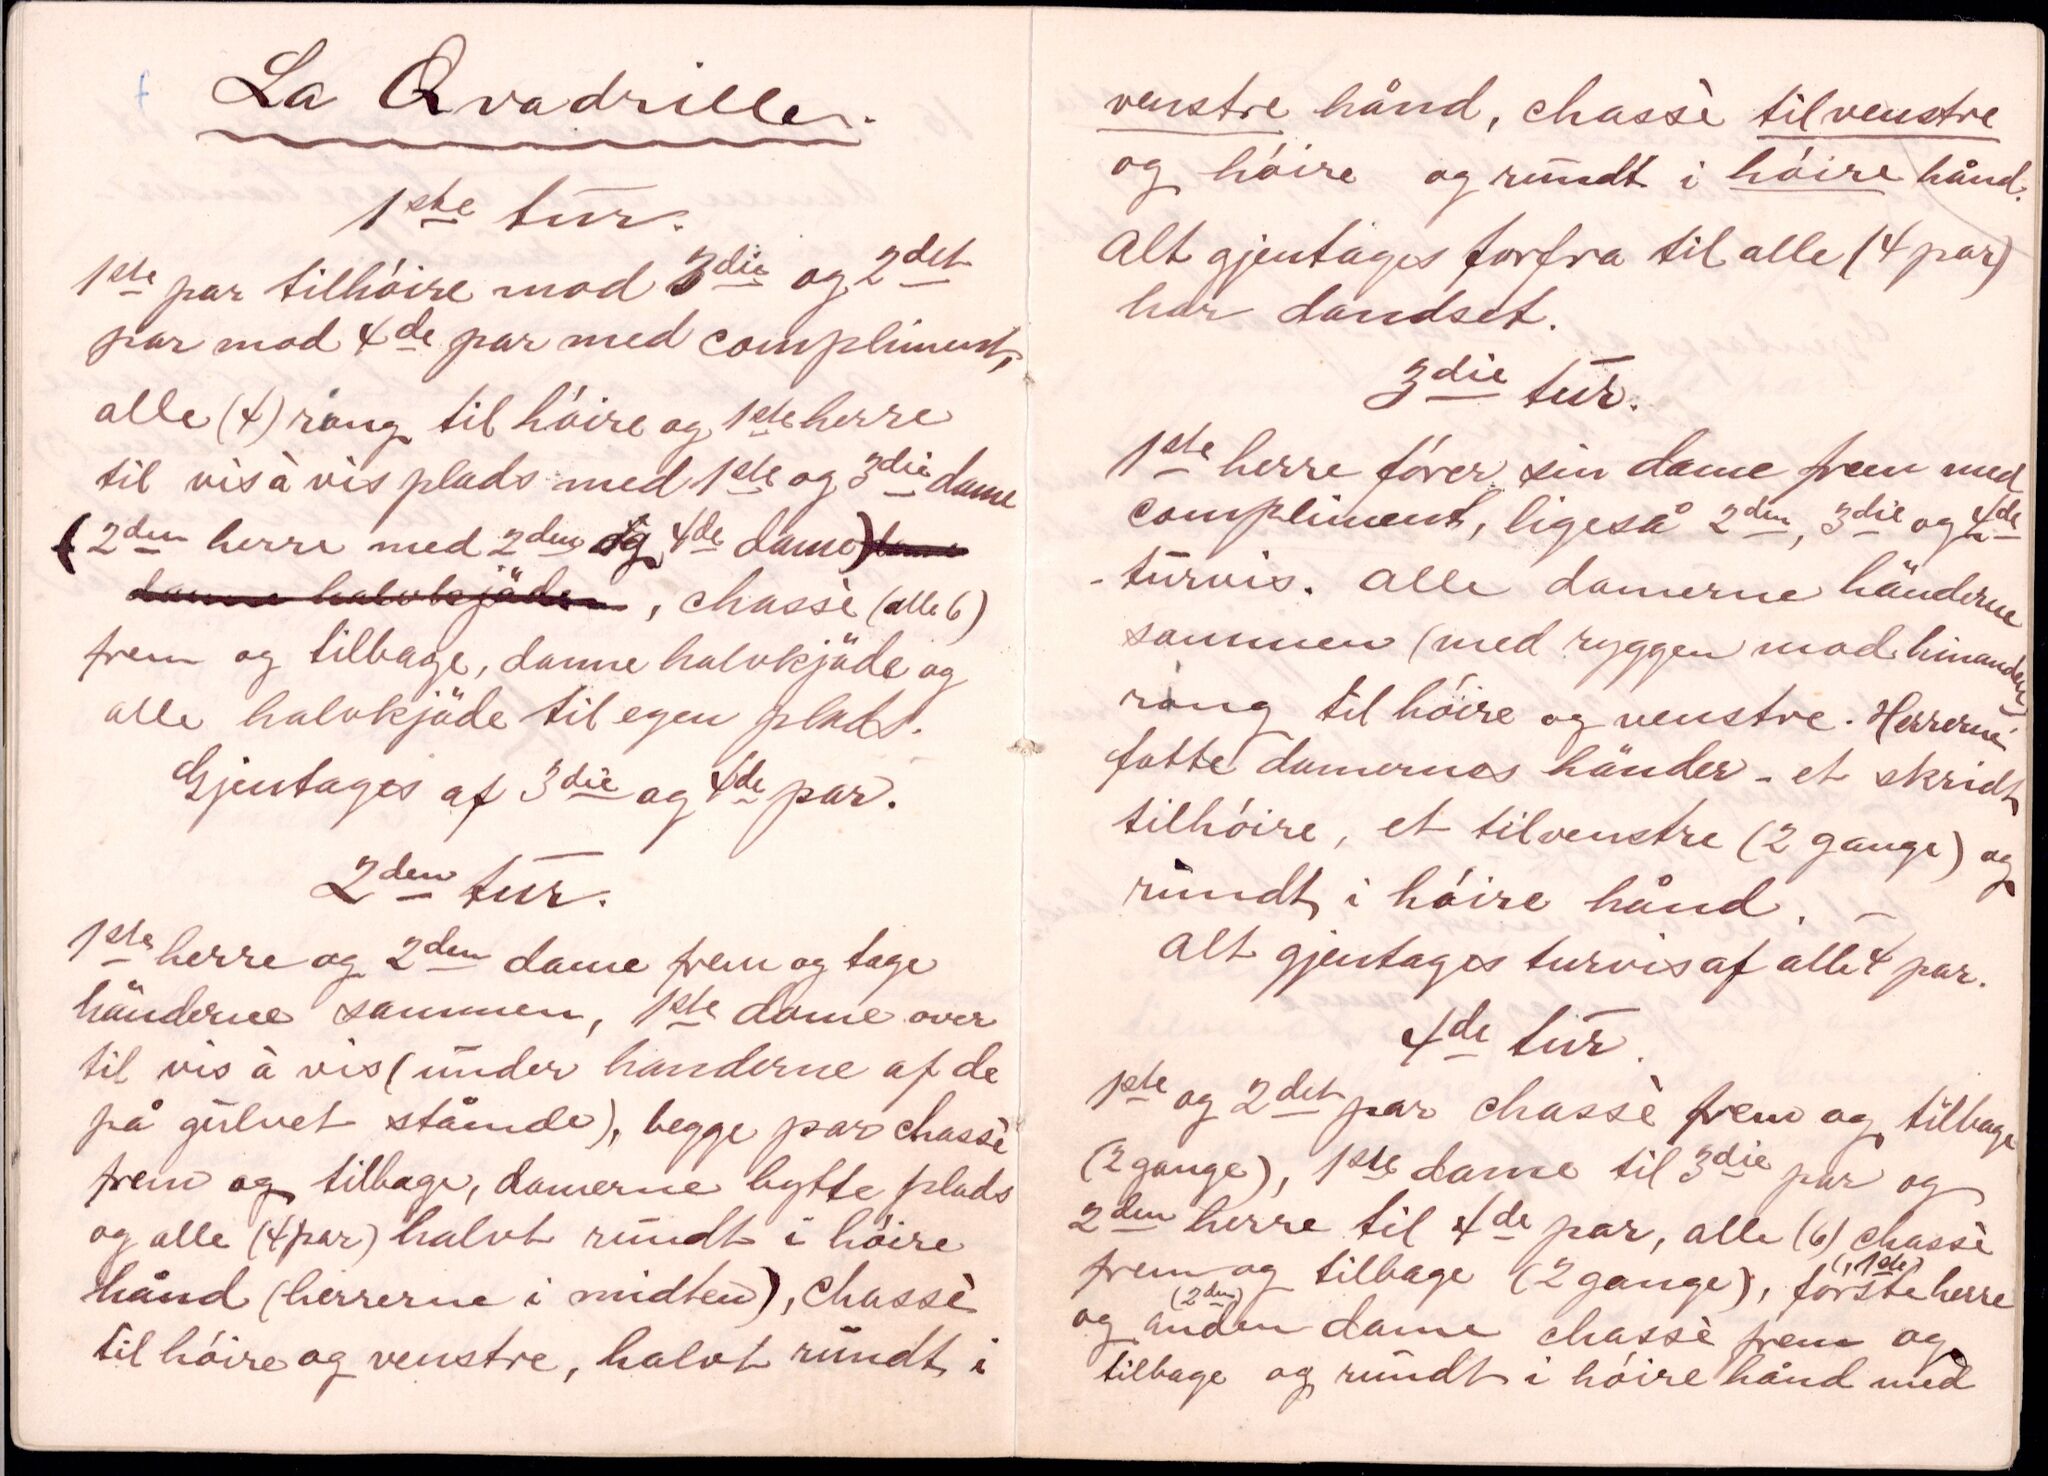 La Qvadrille.
1ste tur.
1ste par tilhóire mod 3die og 2det
par mod 4de par med compliment,
alle (4) ring til hóire og 1ste herre
til vis à vis plads med 1ste og 3die dame
(2den herre med 2den og 4de dame)
danne halvkjäde, chassè (alle 6)
frem og tilbage, danne halvkjäde og
alle halvkjäde til egen plads.
Gjentages af 3die og 4de par.
2den tur.
1ste herre og 2den dame frem og tage
händerne sammen, 1ste dame over
til vis à vis (under handerne af de
på gulvet stånde), begge par chassè
frem og tilbage, damerne bytte plads
og alle (4 par) halvt rundt i hóire
hånd (herrerne i midten), chassè
til hóire og venstre, halvt rundt i
venstre hånd, chassè til venstre
og hóire og rundt i hóire hånd.
Alt gjentages forfra til alle (4 par)
har dandset.
3die tur.
1ste herre fórer sin dame frem med
compliment, ligeså 2den, 3die og 4de
- turvis. Alle damerne händerne
sammen (med ryggen mod hinanden)
ring til hóire og venstre. Herrerne
fatte damernes händer - et skridt
tilhóire, et tilvenstre (2 gange) og
rundt i hóire hånd. -
Alt gjentages turvis af alle 4 par.
4de tur.
1ste og 2det par chassè frem og tilbage
(2 gange), 1ste dame til 3die par og
2den herre til 4de par, alle (6) chassè
frem og tilbage (2 gange), fórste (1ste) herre
og anden (2den) dame chassè frem og
tilbage og rundt i hóire hånd med